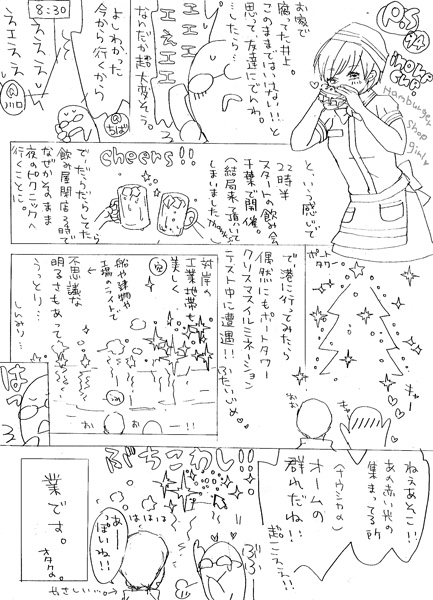 P.S
#4
in ohp
the
Hamburger
Shop
girly
お家で
腐った井上。
このままではいけない!!と
思って、友達にでんわ。
…したら…
なんだか超大変そう。
エェエエ
よしわかった
今から行くから
@ちば
8:30
えぇえぇ
え エえエえ
@川口
と、いう感じで
22時半
スタートの飲み会
千葉で開催。
(結局来て頂いて
しまいました
cheers!!
でーだらだらしてたら
飲み屋閉店3時で
なぜかそのまま
夜のピクニックへ
行くことに。
ポート
タワー
で、港に行ってみたら
偶然にもポートタワー
クリスマスイルミネーション
テスト中に遭遇!!ふたりじめ
キャー
わぉ
対岸の
工業地帯も
美しく
船や建物や
工場のライトで
不思議な
明るさもあって
うっとり…
しんみり…
おぉ
おー!!
はっ
ねぇあそこ!!
あの赤い光の
集まってる所
(ナウシカの)
オームの
群れだね!!
超こえぇ!!
ぶちこわし!!
ぶぶ
ははは
あー
っぽいね!!
やさしい…。
業です。
オタクの。